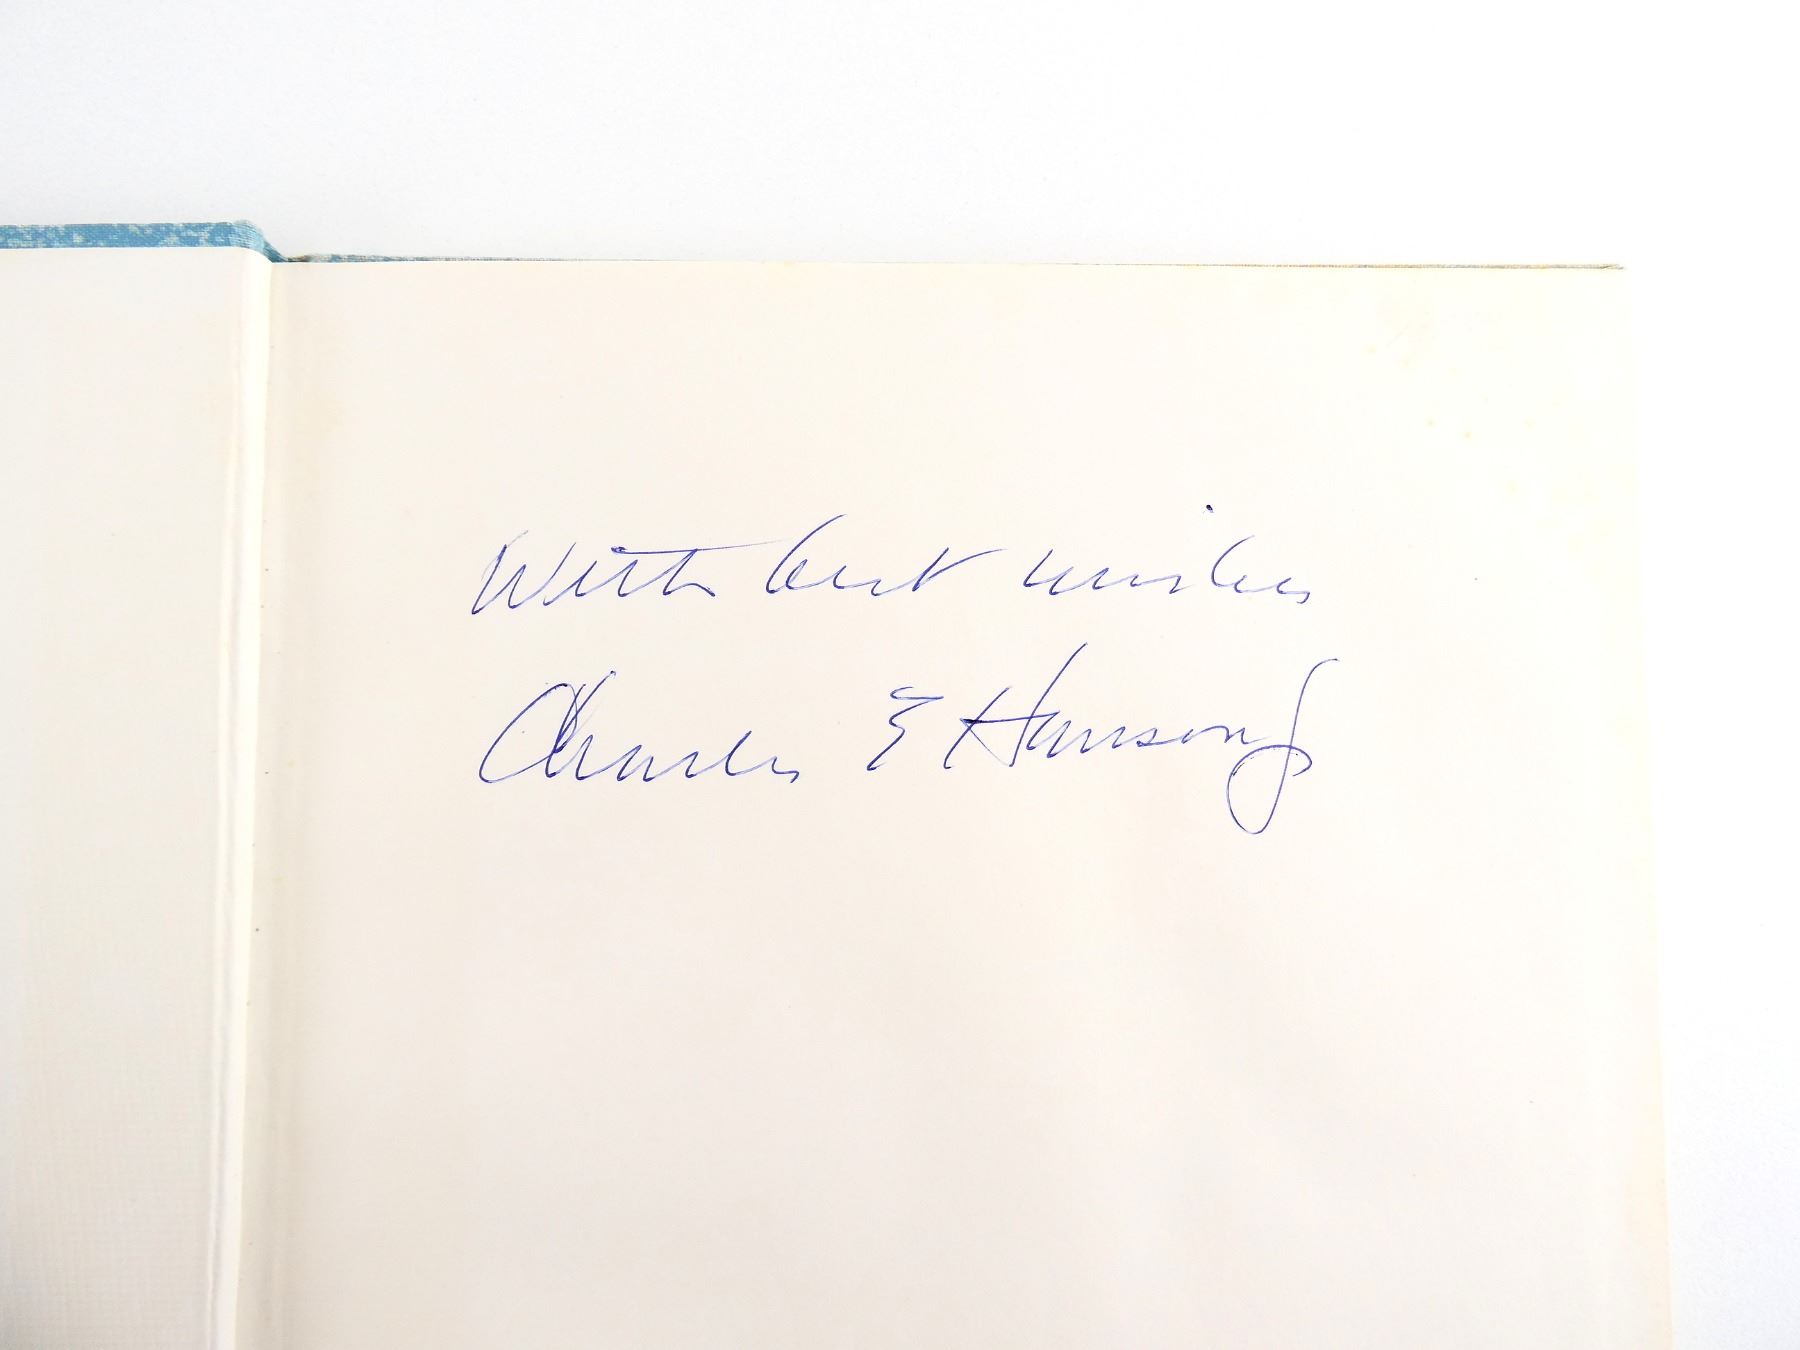 With best wishes
Charles E Hanson J